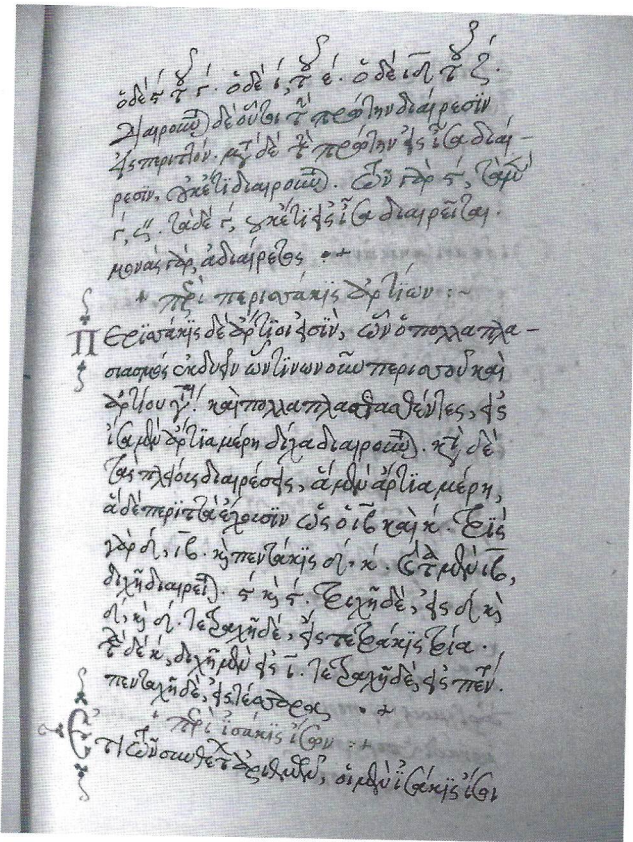 ὁ δὲ ϛ´ τοῦ γ´. ὁ δὲ ι´, τοῦ ε´. ὁ δὲ ιδ τοῦ ζ´.
Διαιροῦνται δὲ οὗτοι τὴν πρώτην διαίρεσιν
εἰς περιττόν. μετὰ δὲ τὴν πρώτην εἰς ἴσα διαί-
ρεσιν, οὐκέτι διαιροῦνται. τῶν γὰρ ϛ´, τὸ ἥμισυ
γ´, τὰ δὲ γ´, οὐκέτι εἰς ἴσα διαιρεῖται.
μονὰς γὰρ, ἀδιαίρετος
περὶ περισσάκις ἀρτίων :~
Περισσάκις δὲ ἄρτιοί εἰσιν, ὧν ὁ πολλαπλα-
σιασμὸς ἐκ δυεῖν ὡντινωνοῦν περισσοῦ καὶ
ἀρτίου γίνεται καὶ πολλαπλασιασθέντες, εἰς
ἴσα μὲν ἄρτια μέρη δίχα διαιροῦνται. κατὰ δὲ
τὰς πλείους διαιρέσεις, ἃ μὲν ἄρτια μέρη,
ἃ δὲ περιττὰ ἔχουσιν ὡς ὁ ιβ καὶ κ. τρὶς
γὰρ δ´, ιβ. καὶ πεντάκις δ´, κ. καὶ τὰ μὲν ιβ,
διχῆ διαιρεῖται ϛ´ καὶ ϛ´. τριχῆ δὲ, εἰς δ´ καὶ
δ´, καὶ δ´. τετραχῆ δὲ, εἰς τετράκις τρία.
τὰ δὲ κ, διχῆ μὲν εἰς ι. τετραχῆ δὲ, εἰς πέντε.
πενταχῆ δὲ, εἰς τέσσαρας
περὶ ἰσάκις ἴσων
Ἔτι τῶν συνθέτων ἀριθμῶν, οἱ μὲν ἰσάκις ἴσοι